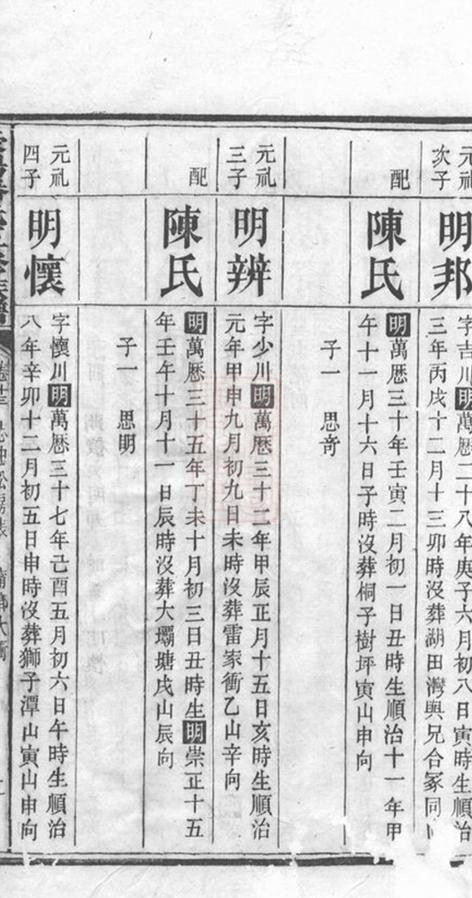 元礼
次子
明邦
字吉川明萬厯二十八年庚子六月初八日寅時生順治
三年丙戌十二月十三卯時沒葬湖田灣與兄合冢同
配
陳氏
明萬厯三十年壬寅二月初一日丑時生順治十一年甲
午十一月十六日子時沒葬桐子樹坪寅山申向
子一 思奇
元礼
三子
明辨
字少川明萬厯三十二年甲辰正月十五日亥時生順治
元年甲申九月初九日未時沒葬雷家衝乙山辛向
配
陳氏
明萬厯三十五年丁未十月初三日丑時生明崇正十五
年壬午十月十一日辰時沒葬大壩塘戌山辰向
子一 思明
元礼
四子
明懷
字懷川明萬厯三十七年己酉五月初六日午時生順治
八年辛卯十二月初五日申時沒葬獅子潭山寅山申向
卷十三